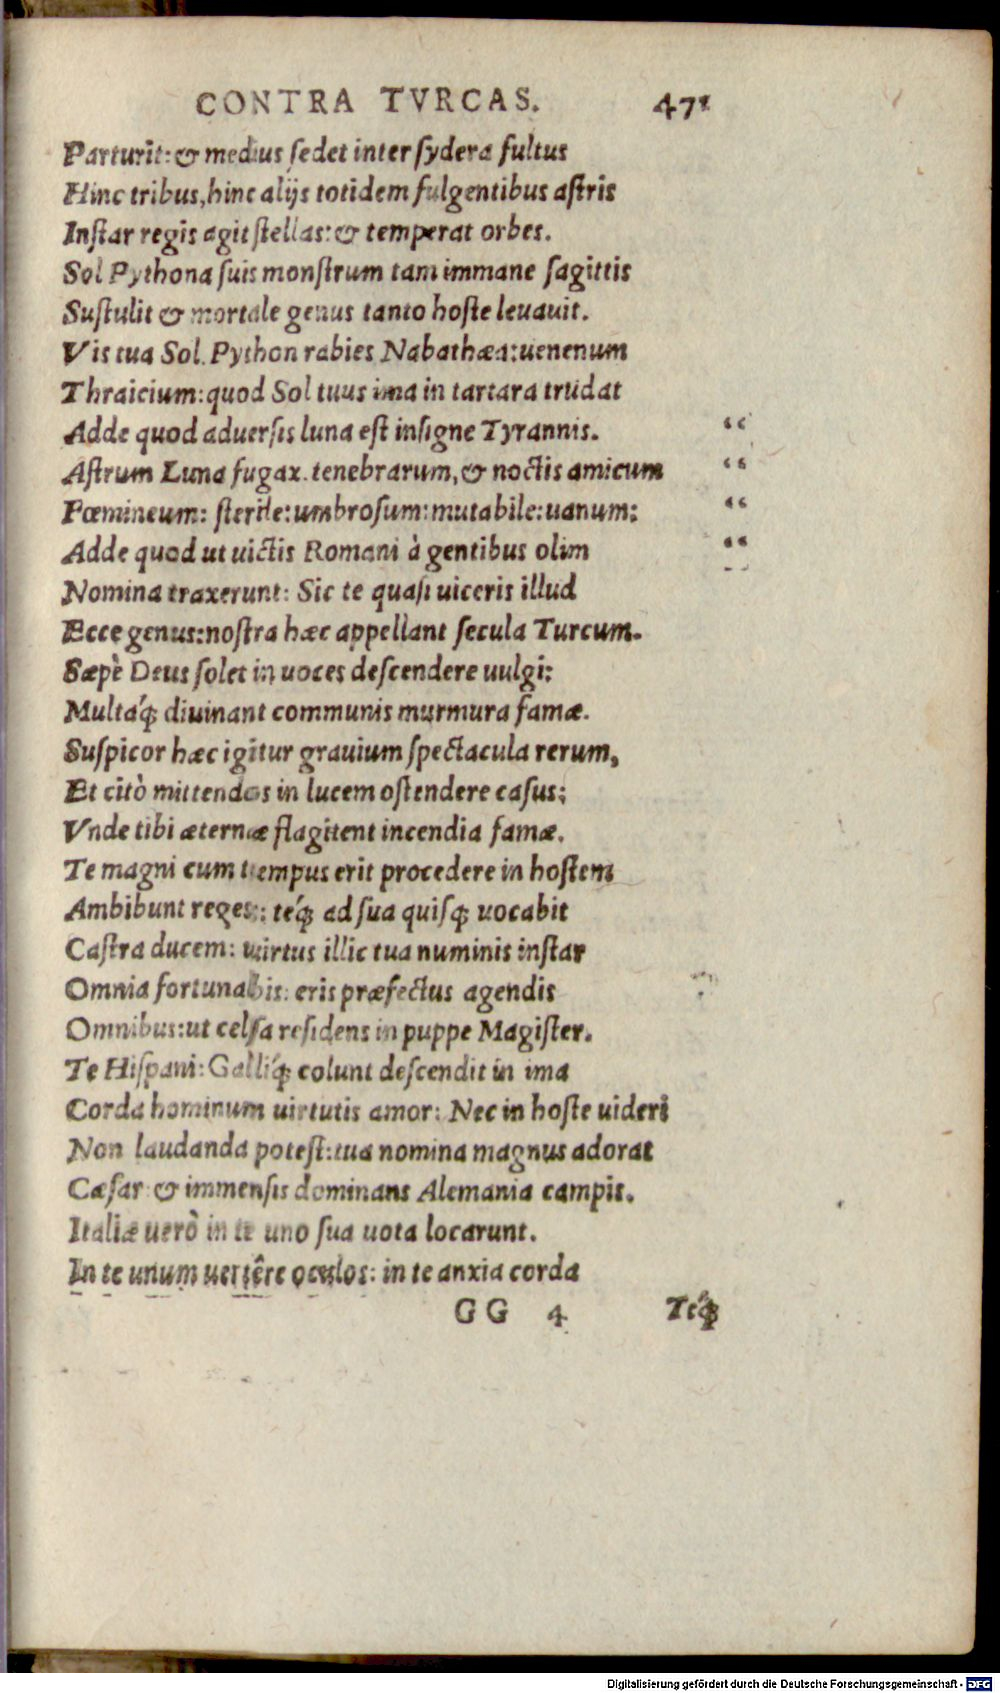 CONTRA TVRCAS. 471
Parturit: & medius ſedet inter ſydera fultus
Hinc tribus, hinc alijs totidem fulgentibus aſtris
Inſtar regis agit ſtellas: & temperat orbes.
Sol Pythona ſuis monſtrum tam immane ſagittis
Suſtulit & mortale genus tanto hoſte leuauit.
Vis tua Sol. Python rabies Nabathæa: uenenum
Thraicium: quod Sol tuus ima in tartara trudat
Adde quod aduerſis luna eſt inſigne Tyrannis. “
Aſtrum Luna fugax. tenebrarum, & noctis amicum “
Fœmineum: ſterile: umbroſum: mutabile: uanum: “
Adde quod ut uictis Romani à gentibus olim “
Nomina traxerunt: Sic te quaſi uiceris illud
Ecce genus: noſtra hæc appellant ſecula Turcum.
Sæpè Deus ſolet in uoces deſcendere uulgi:
Multaq́; diuinant communis murmura famæ.
Suſpicor hæc igitur grauium ſpectacula rerum,
Et citò mittendos in lucem oſtendere caſus;
Vnde tibi æternæ flagitent incendia famæ.
Te magni cum tempus erit procedere in hoſtem
Ambibunt reges: teq́; ad ſua quiſq; uocabit
Caſtra ducem: uirtus illic tua numinis inſtar
Omnia fortunabis: eris præfectus agendis
Omnibus: ut celſa reſidens in puppe Magiſter.
Te Hiſpani: Galliq́; colunt deſcendit in ima
Corda hominum uirtutis amor: Nec in hoſte uideri
Non laudanda poteſt: tua nomina magnus adorat
Cæſar: & immenſis dominans Alemania campis.
Italiæ uerò in te uno ſua uota locarunt.
In te unum uertêre oculos: in te anxia corda
GG 4 Teq́;
Digitalisierung gefördert durch die Deutsche Forschungsgemeinschaft - DFG